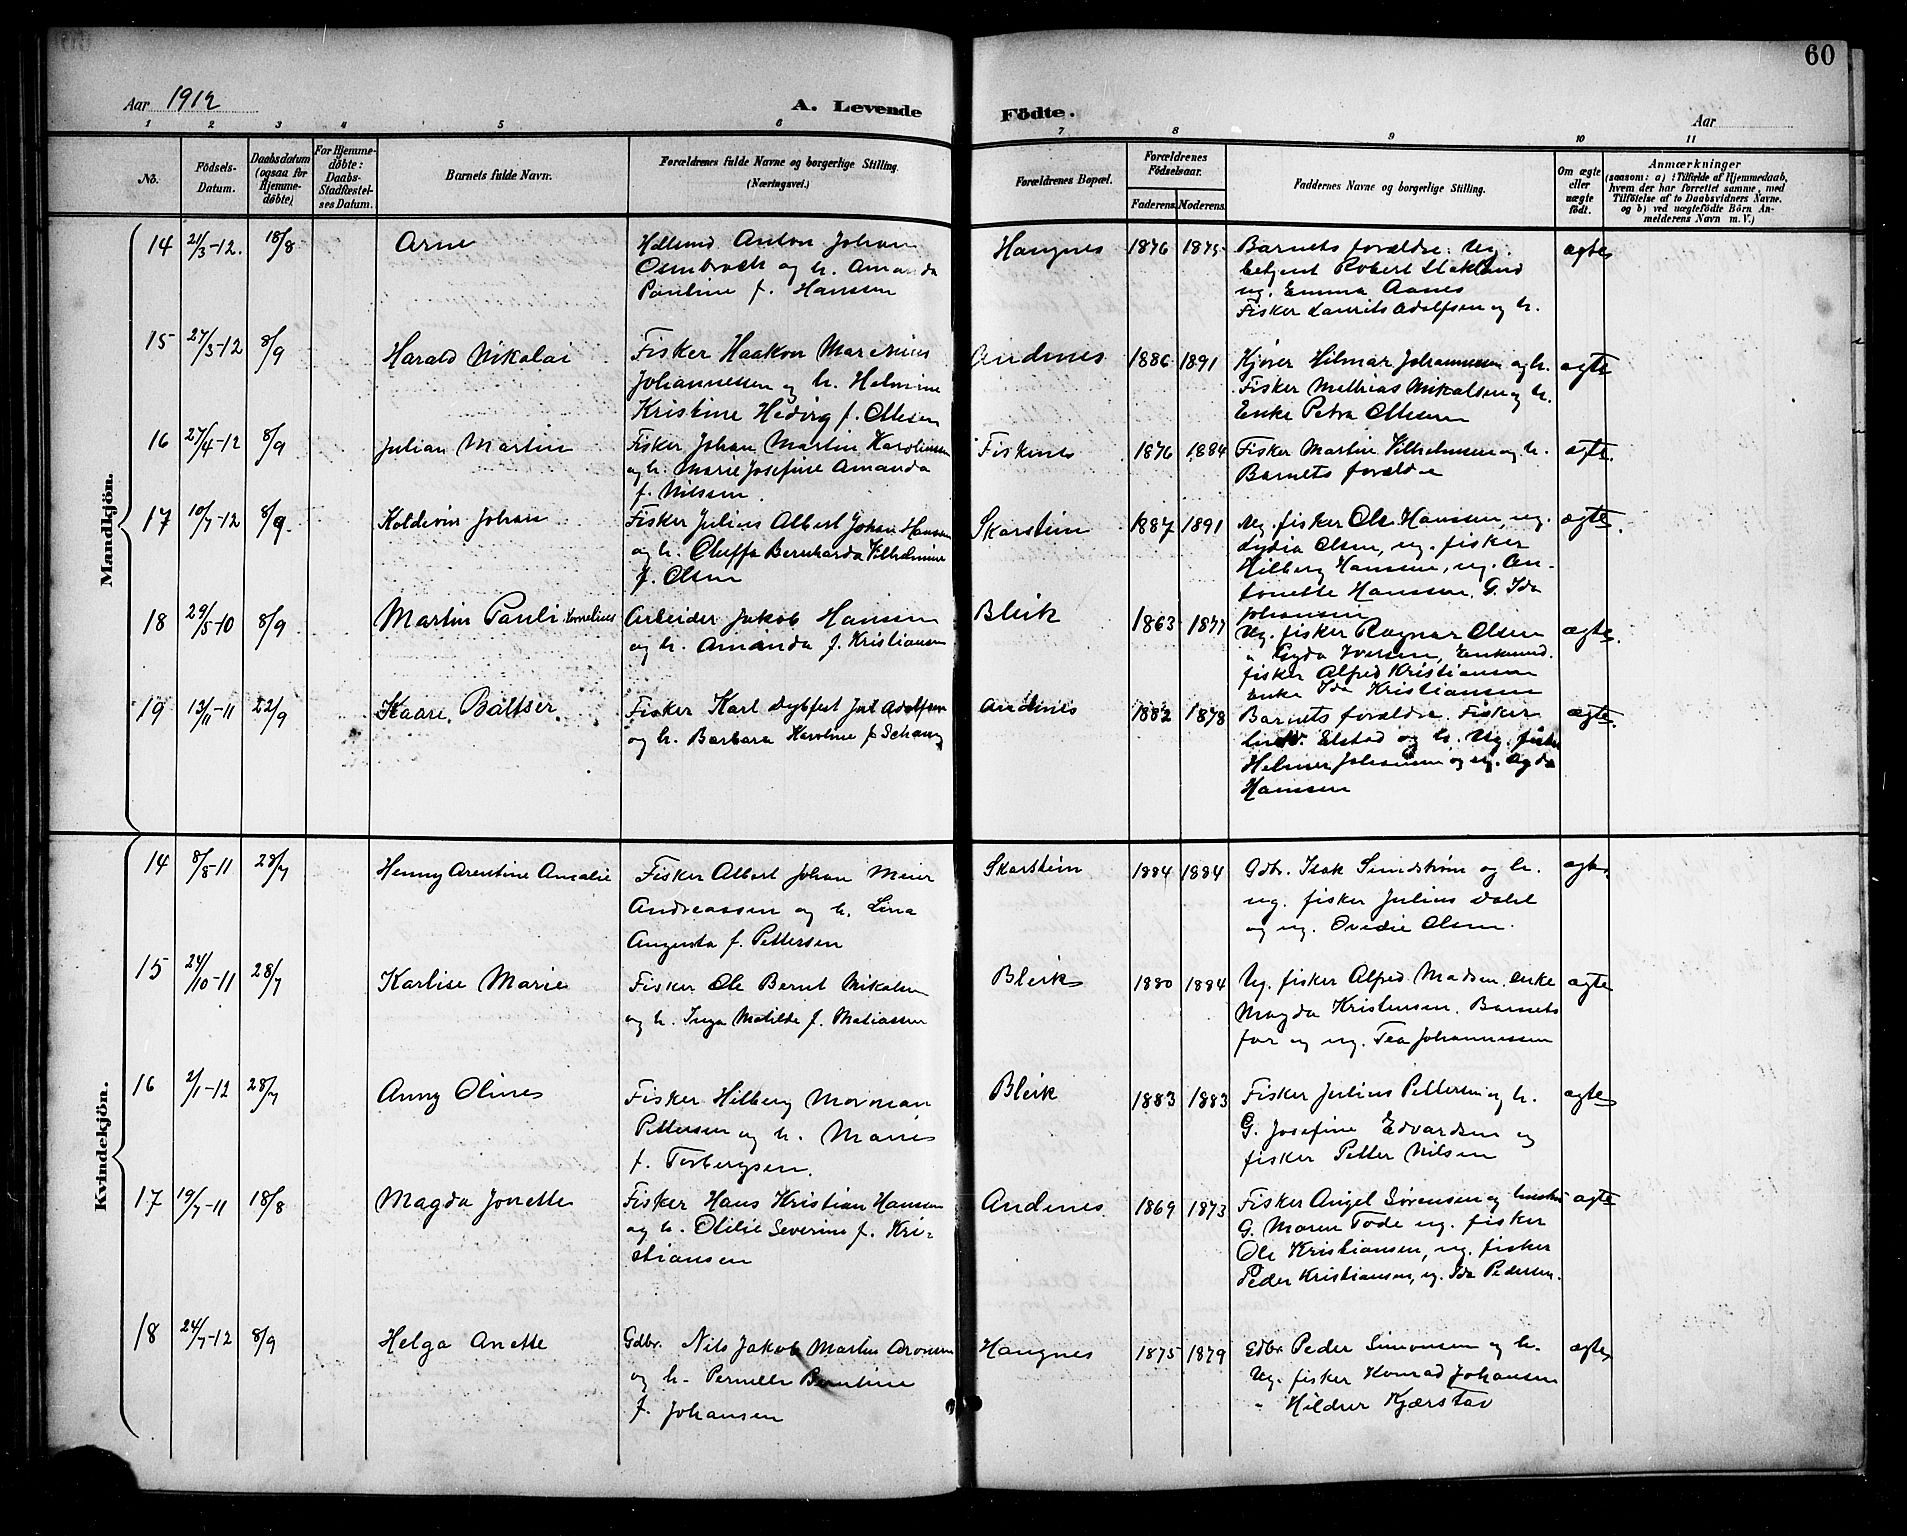 60
Aar 1912
A. Levende Födte.
Aar
1 2 3 4 5 6 7 8 9 10 11
No.
Födsels-Datum.
Daabsdatum (ogsaa for Hjemme-døbte)
For Hjemme-døbte: Daabs-Stadfæstel-ses Datum.
Barnets fulde Navn.
Forældrenes fulde Navne og borgerlige Stilling.
(Næringsvei.)
Forældrenes Bopæl.
Forældrenes Födselsaar.
Faderens. Moderens.
Faddernes Navne og borgerlige Stilling.
Om ægte eller uægte født.
Anmærkninger
(saasom: a) i Tilfælde af Hjemmedaab, hvem der har forrettet samme, med Tilføielse af to Daabsvidners Navne. og b) ved uægtefödte Börn An-melderens Navn m. V.)
Mandkjön.
14 21/3-12. 18/8 Arne
Anton Johan
og h. Amanda
Pauline f. Hanssen
Haugnes 1876 1875
Barnets forældre. Ug.
betjent Robert
ug. Emma Aanes
Fisker Laurits Adolfsen og h.
ægte
15 27/3-12 8/9 Harald Nikolai
Fisker Haakon Marenius
Johannessen og h. Helmine
Kristine Hedvig f. Ottesen
Andenes 1886 1891
Hilmar Johannessen og h.
Fisker Mathias Mikalsen og h.
Enke Petra Ottesen
ægte
16 27/4-12 8/9 Julian Martin
Fisker Johan Martin Karoliussen
og h. Marie Josefine Amanda
f. Nilsen.
Fiskenes 1876 1884
Fisker Martin Vilhelmsen og h.
Barnets forældre
ægte.
17 10/7-12 8/9. Koldevin Johan
Fisker Julius Albert Johan Hanssen
og h. Oluffa Bernharda Vilhelmine
f. Olsen
Skarstein 1887 1891
Ug. fisker Ole Hanssen, ug.
Lydia Olsen, ug. fisker
Hilberg Hanssen, ug. An-
tonette Hanssen. G. Ida
Johansen
ægte.
18 29/5-10 8/9 Martin Pauli Kornelius
Arbeider Jakob Hanssen
og h. Amanda f. Kristiansen
Bleik 1863 1877
Ug. fisker Ragnar Olsen
" Gyda Iversen, Enkemd.
fisker Alfred Kristiansen
Enke Ida Kristiansen
ægte.
19 13/11-11 22/9 Kaare Baltser
Fisker Karl Dybfest Juel Adolfsen
og h. Barbara Karoline f. Schanz
Andenes 1882 1878
Barnets forældre. Fisker
Elstad og h. Ug. fisker
Helmer Johansen og ug. Agda
Hanssen
ægte.
Kvindekjön.
14 8/8-11 28/7 Henny Arentine Amalie
Fisker Albert Johan Meier
Andreassen og h. Lina
Augusta f. Pettersen
Skarstein 1884 1884
Gdbr. Isak Sundstrøm og h.
ug. fisker Julius Dahl
og ug. Ovedie Olsen.
ægte.
15 24/10-11 28/7 Karlise Marie
Fisker Ole Bernt Mikalsen
og h. Inga Matilde f. Matiassen
Bleik 1880 1884
Ug. fisker Alfred Madsen. Enke
Magda Kristensen. Barnets
far og ug. Tea Johannessen
ægte
16 2/1-12 28/7 Anny Oline
Fisker Hilberg Norman
Pettersen og h. Marie
f. Torbergsen.
Bleik 1883 1883
Fisker Julius Pettersen og h.
G. Josefine Edvardsen og
fisker Petter Nilsen
ægte
17 19/7-11 18/8 Magda Jonette
Fisker Hans Kristian Hanssen
og h. Otilie Severine f. Kri-
stiansen
Andenes 1869 1873
Fisker Angel Sørensen og hustru
G. Maren Tode ug. fisker
Ole Kristiansen, ug. fisker
Peder Kristiansen, ug. Ida Pedersen.
ægte
18 24/7-12 8/9 Helga Anette
Gdbr. Nils Jakob Martin Aronsen
og h. Pernelle Berntine
f. Johansen
Haugnes 1875 1879
Gdbr Peder Simonsen og h.
Ug. fisker Konrad Johansen
" Hildur Kjærstad
ægte